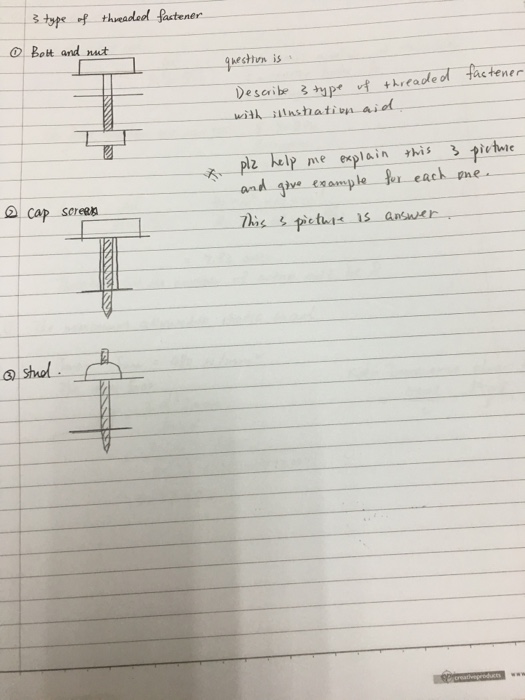 3 type of threaded fastener
① Bott and nut
question is
Describe 3 type of threaded factener
with illnstration aid
* plz help me explain this 3 picture
and give example for each one.
② cap screen
This 3 picture is answer.
③ stud.
creativeproducts